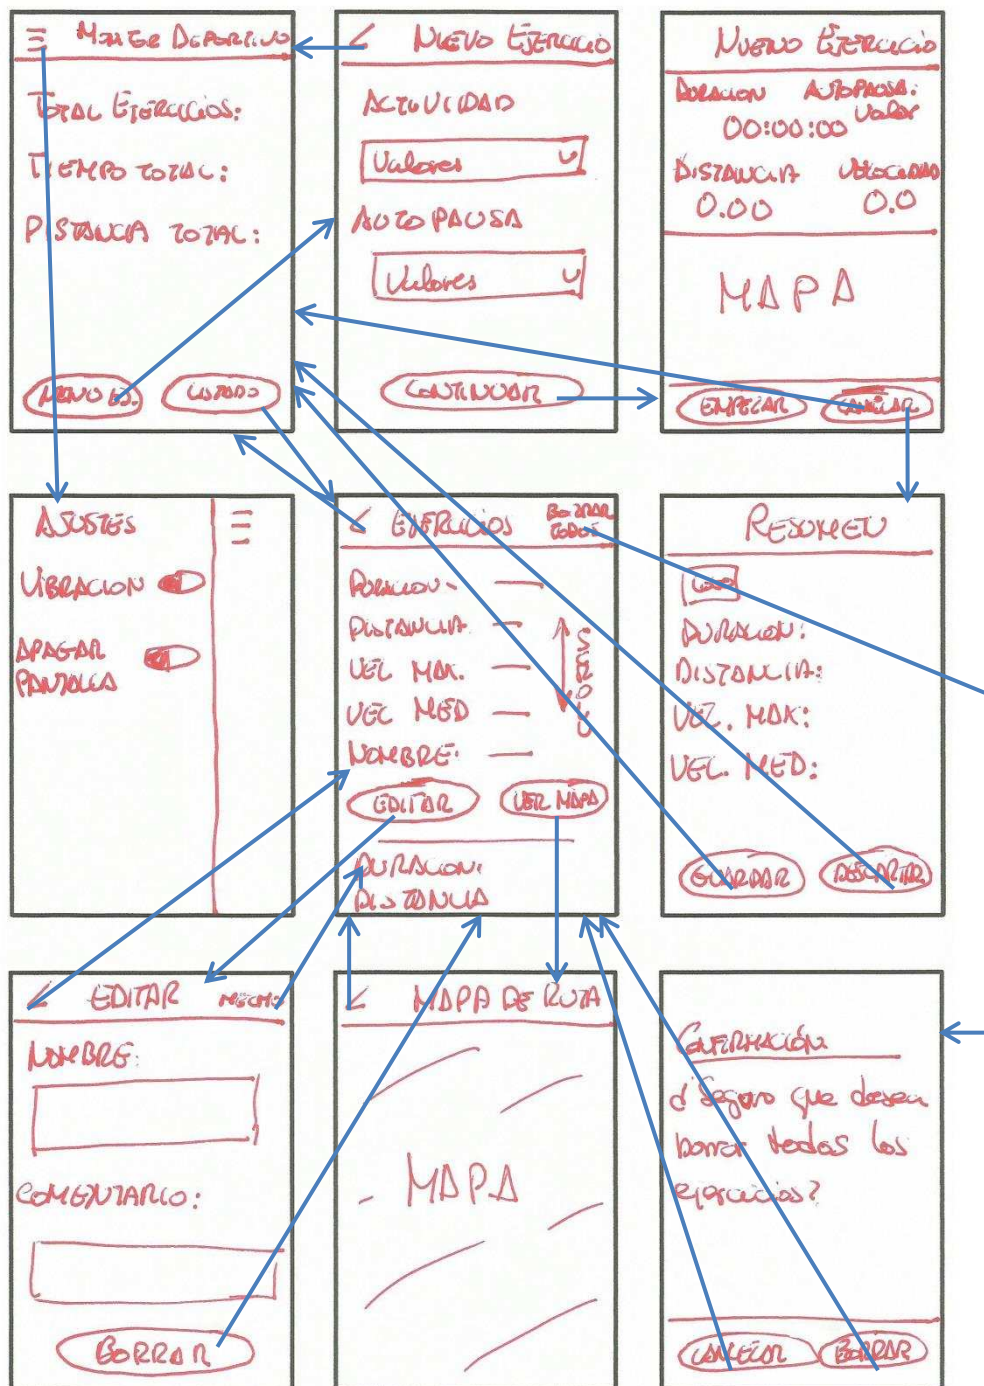 MONITOR DEPORTIVO
TOTAL EJERCICIOS:
TIEMPO TOTAL:
DISTANCIA TOTAL:
NUEVO EJ.
LISTADO
NUEVO EJERCICIO
ACTIVIDAD
Valores
AUTOPAUSA
Valores
CONTINUAR
NUEVO EJERCICIO
DURACION AUTOPAUSA:
00:00:00 Valor
DISTANCIA VELOCIDAD
0.00 0.0
MAPA
EMPEZAR
CANCELAR
AJUSTES
VIBRACION
APAGAR
PANTALLA
EJERCICIOS BORRAR
TODOS
DURACION-
DISTANCIA
VEL MAX.
VEL MED
NOMBRE:
SCROLL
EDITAR
VER MAPA
DURACION:
DISTANCIA
RESUMEN
DURACION:
DISTANCIA:
VEL. MAX:
VEL. MED:
GUARDAR
DESCARTAR
EDITAR HECHO
NOMBRE:
COMENTARIO:
BORRAR
MAPA DE RUTA
MAPA
CONFIRMACIÓN
¿Seguro que desea
borrar todos los
ejercicios?
CANCELAR
BORRAR